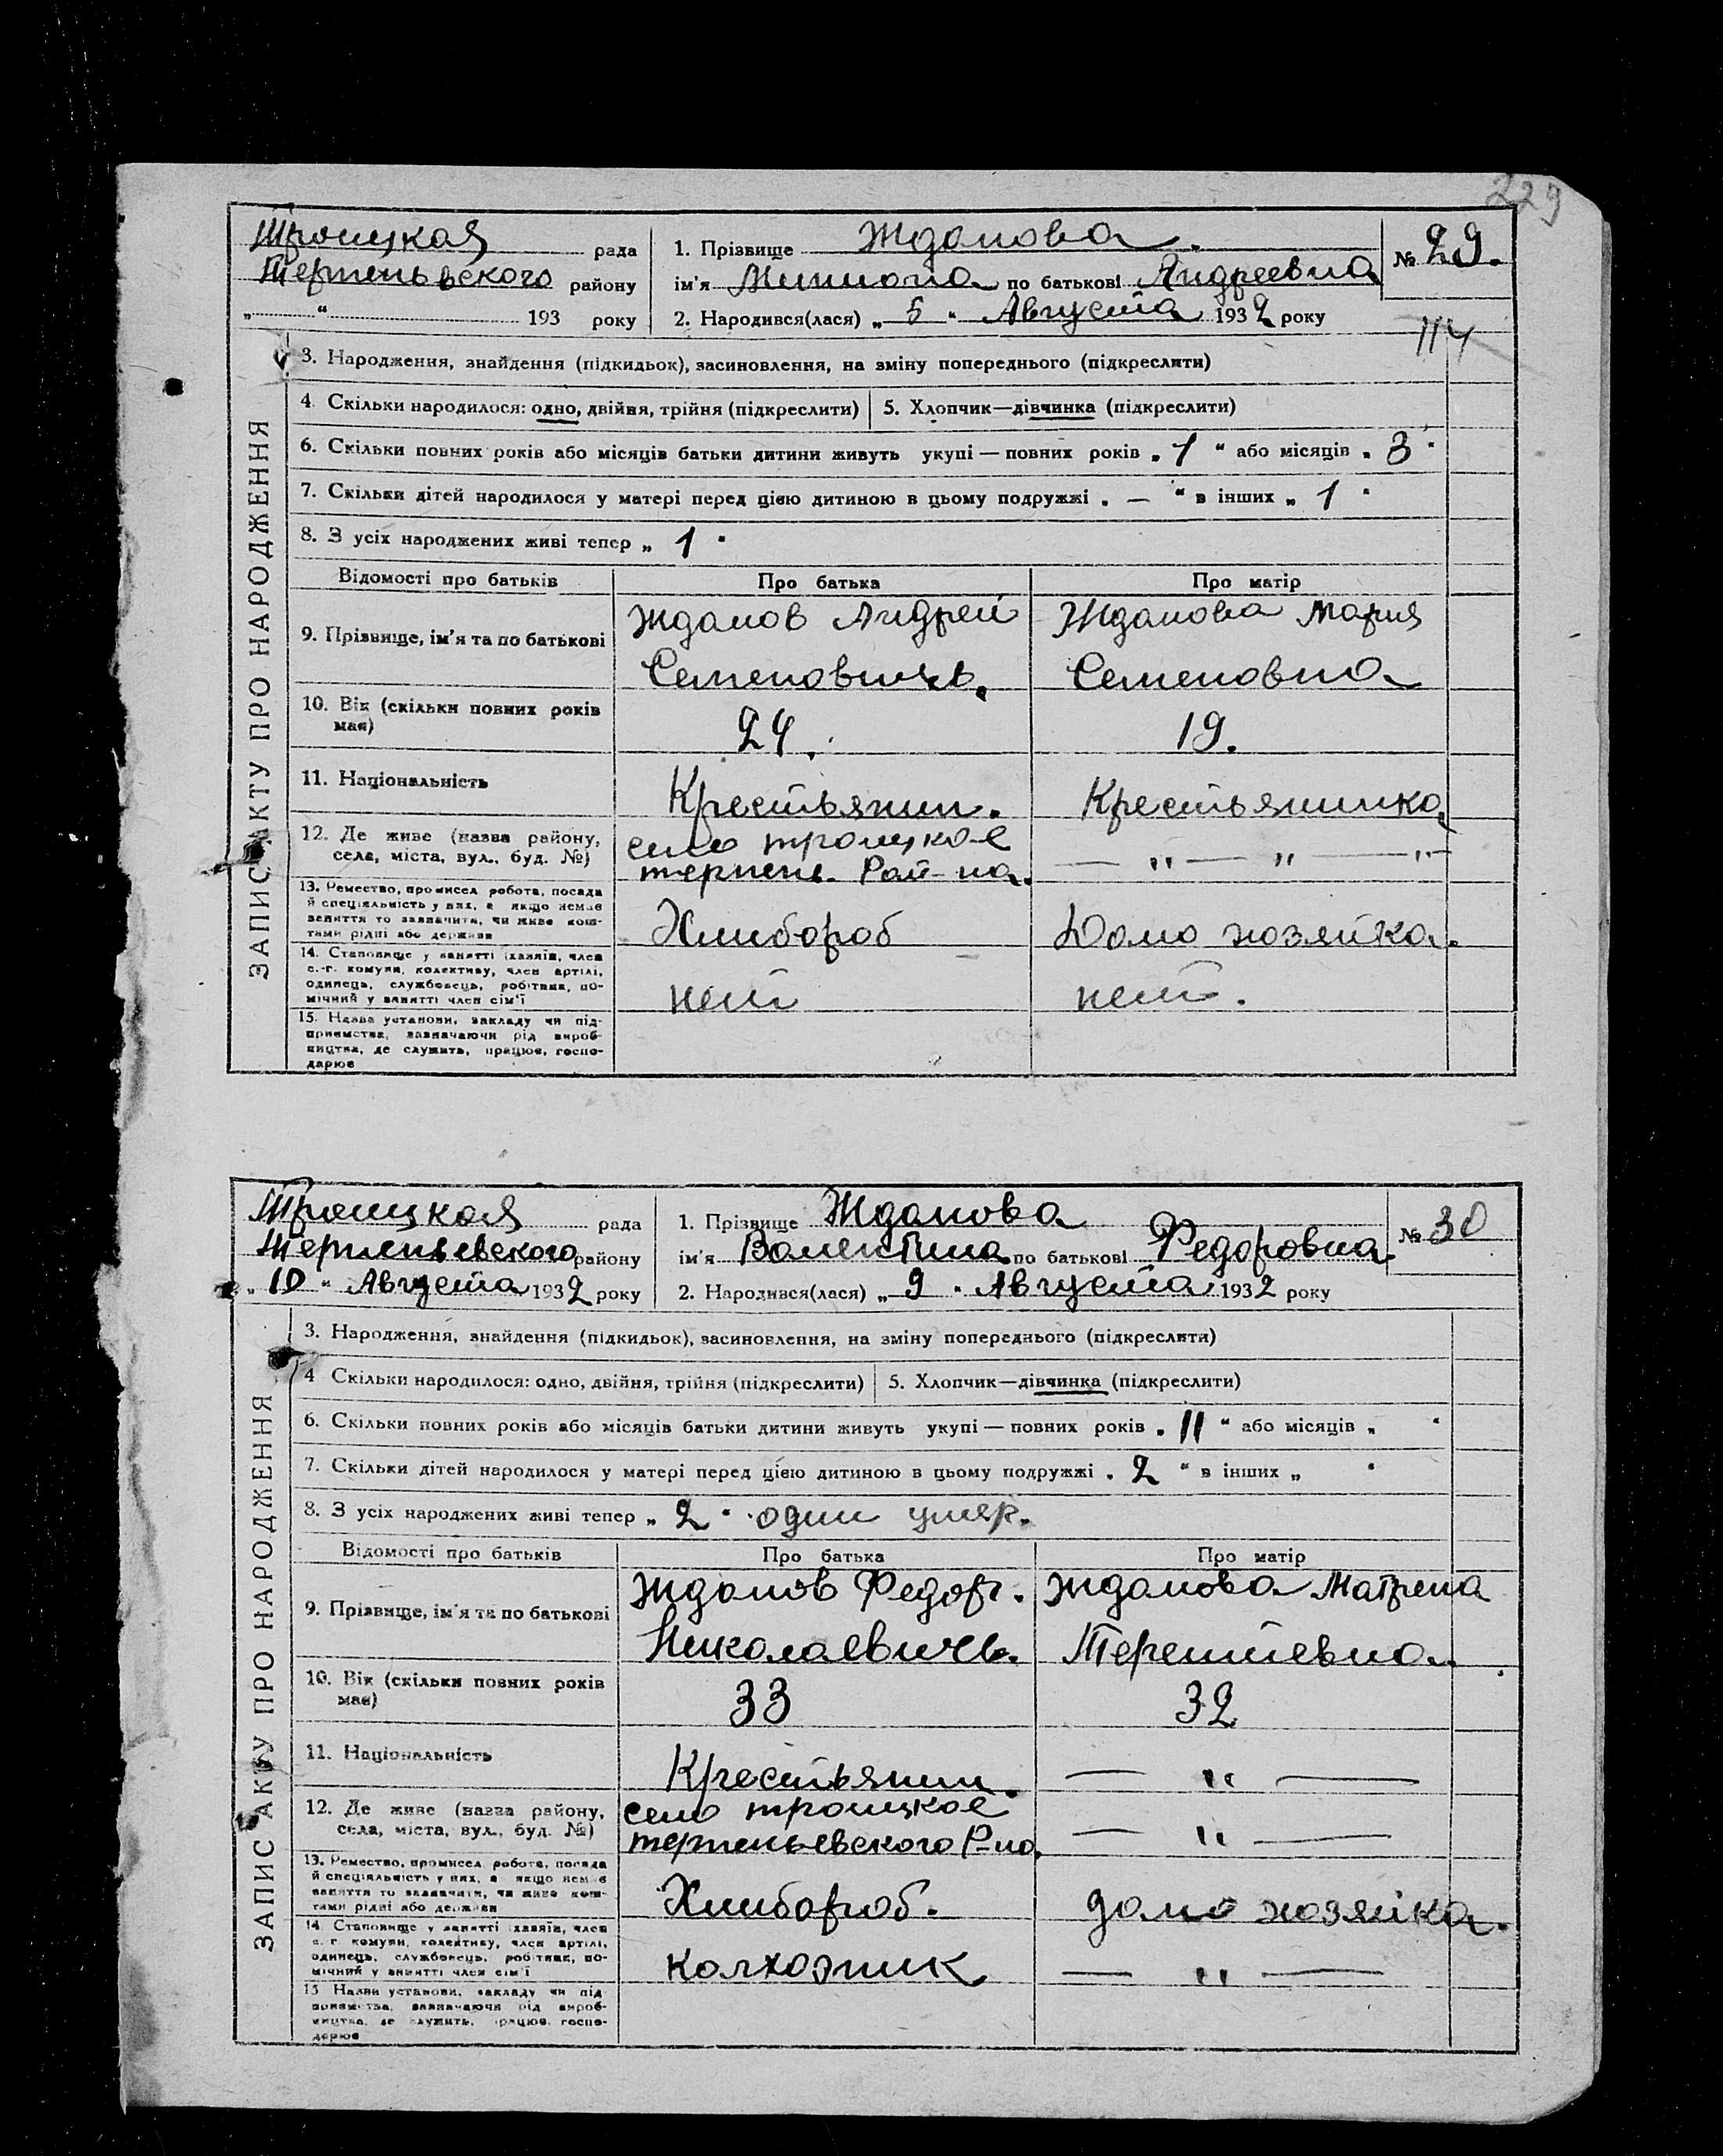 229
Троицкая рада
Терпеньвского району
„ “ 193 року
1. Прізвище Жданова.
ім'я по батькові Андреевна
2. Народився(лася) „ 5 “ Августа 1932 року
№ 29.
114
ЗАПИС АКТУ ПРО НАРОДЖЕННЯ
3. Народження, знайдення (підкидьок), засиновлення, на зміну попереднього (підкреслити)
4. Скільки народилося: одно, двійня, трійня (підкреслити) 5. Хлопчик—дівчинка (підкреслити)
6. Скільки повних років або місяців батьки дитини живуть укупі — повних років „ 1 “ або місяців „ 3 “
7. Скільки дітей народилося у матері перед цією дитиною в цьому подружжі „ — “ в інших „ 1 “
8. З усіх народжених живі тепер „ 1 “
Відомості про батьків Про батька Про матір
9. Прізвище, ім'я та по батькові
Жданов Андрей
Семеновичь.
Жданова Мария
Семеновна
10. Вік (скільки повних років
має)
24. 19.
11. Національність Крестьянин. Крестьянинка
12. Де живе (назва району,
села, міста, вул., буд. №)
село троицкое
терпень. Рай-на.
— „ — „ — „ —
13. Ремество, промисел, робота, посада
й спеціяльність у них, а якщо немає
заняття то зазначити, чи живе кош-
тами рідні або держави
Хлибороб Домо хозяйка.
14. Становище у занятті (хазяїн, член
с.-г. комуни, колективу, член артілі,
одинець, службовець, робітник, по-
мічний у занятті член сім'ї
нет нет.
15. Назва установи, закладу чи під-
приємства, зазначаючи рід вироб-
ництва, де служить, працює, госпо-
дарює
Троицкая рада
Терпеньевского району
„ 10 “ Августа 1932 року
1. Прізвище Жданова
ім'я Валентина по батькові Федоровна.
2. Народився(лася) „ 9 “ Августа 1932 року
№ 30
ЗАПИС АКТУ ПРО НАРОДЖЕННЯ
3. Народження, знайдення (підкидьок), засиновлення, на зміну попереднього (підкреслити)
4 Скільки народилося: одно, двійня, трійня (підкреслити) 5. Хлопчик—дівчинка (підкреслити)
6. Скільки повних років або місяців батьки дитини живуть укупі — повних років „ 11 “ або місяців „ “
7. Скільки дітей народилося у матері перед цією дитиною в цьому подружжі „ 2 “ в інших „ “
8. З усіх народжених живі тепер „ 2 “ один умер.
Відомості про батьків Про батька Про матір
9. Прізвище, ім'я та по батькові
Жданов Федор.
Николаевичь.
Жданова Матрена
Терентевна.
10. Вік (скільки повних років
має)
33 32
11. Національність Крестьянин. — „ —
12. Де живе (назва району,
села, міста, вул., буд. №)
село троицкое
терпеньевского Р-на.
— „ —
13. Ремество, промисел, робота, посада
й спеціяльність у них, а якщо немає
заняття то зазначити, чи живе кош-
тами рідні або держави
Хлибороб. домо хозяйка.
14. Становище у занятті (хазяїн, член
с.-г. комуни, колективу, член артілі,
одинець, службовець, робітник, по-
мічний у занятті член сім'ї
колхозник — „ —
15 Назва установи, закладу чи під-
приємства, зазначаючи рід вироб-
ництва, де служить, працює, госпо-
дарює